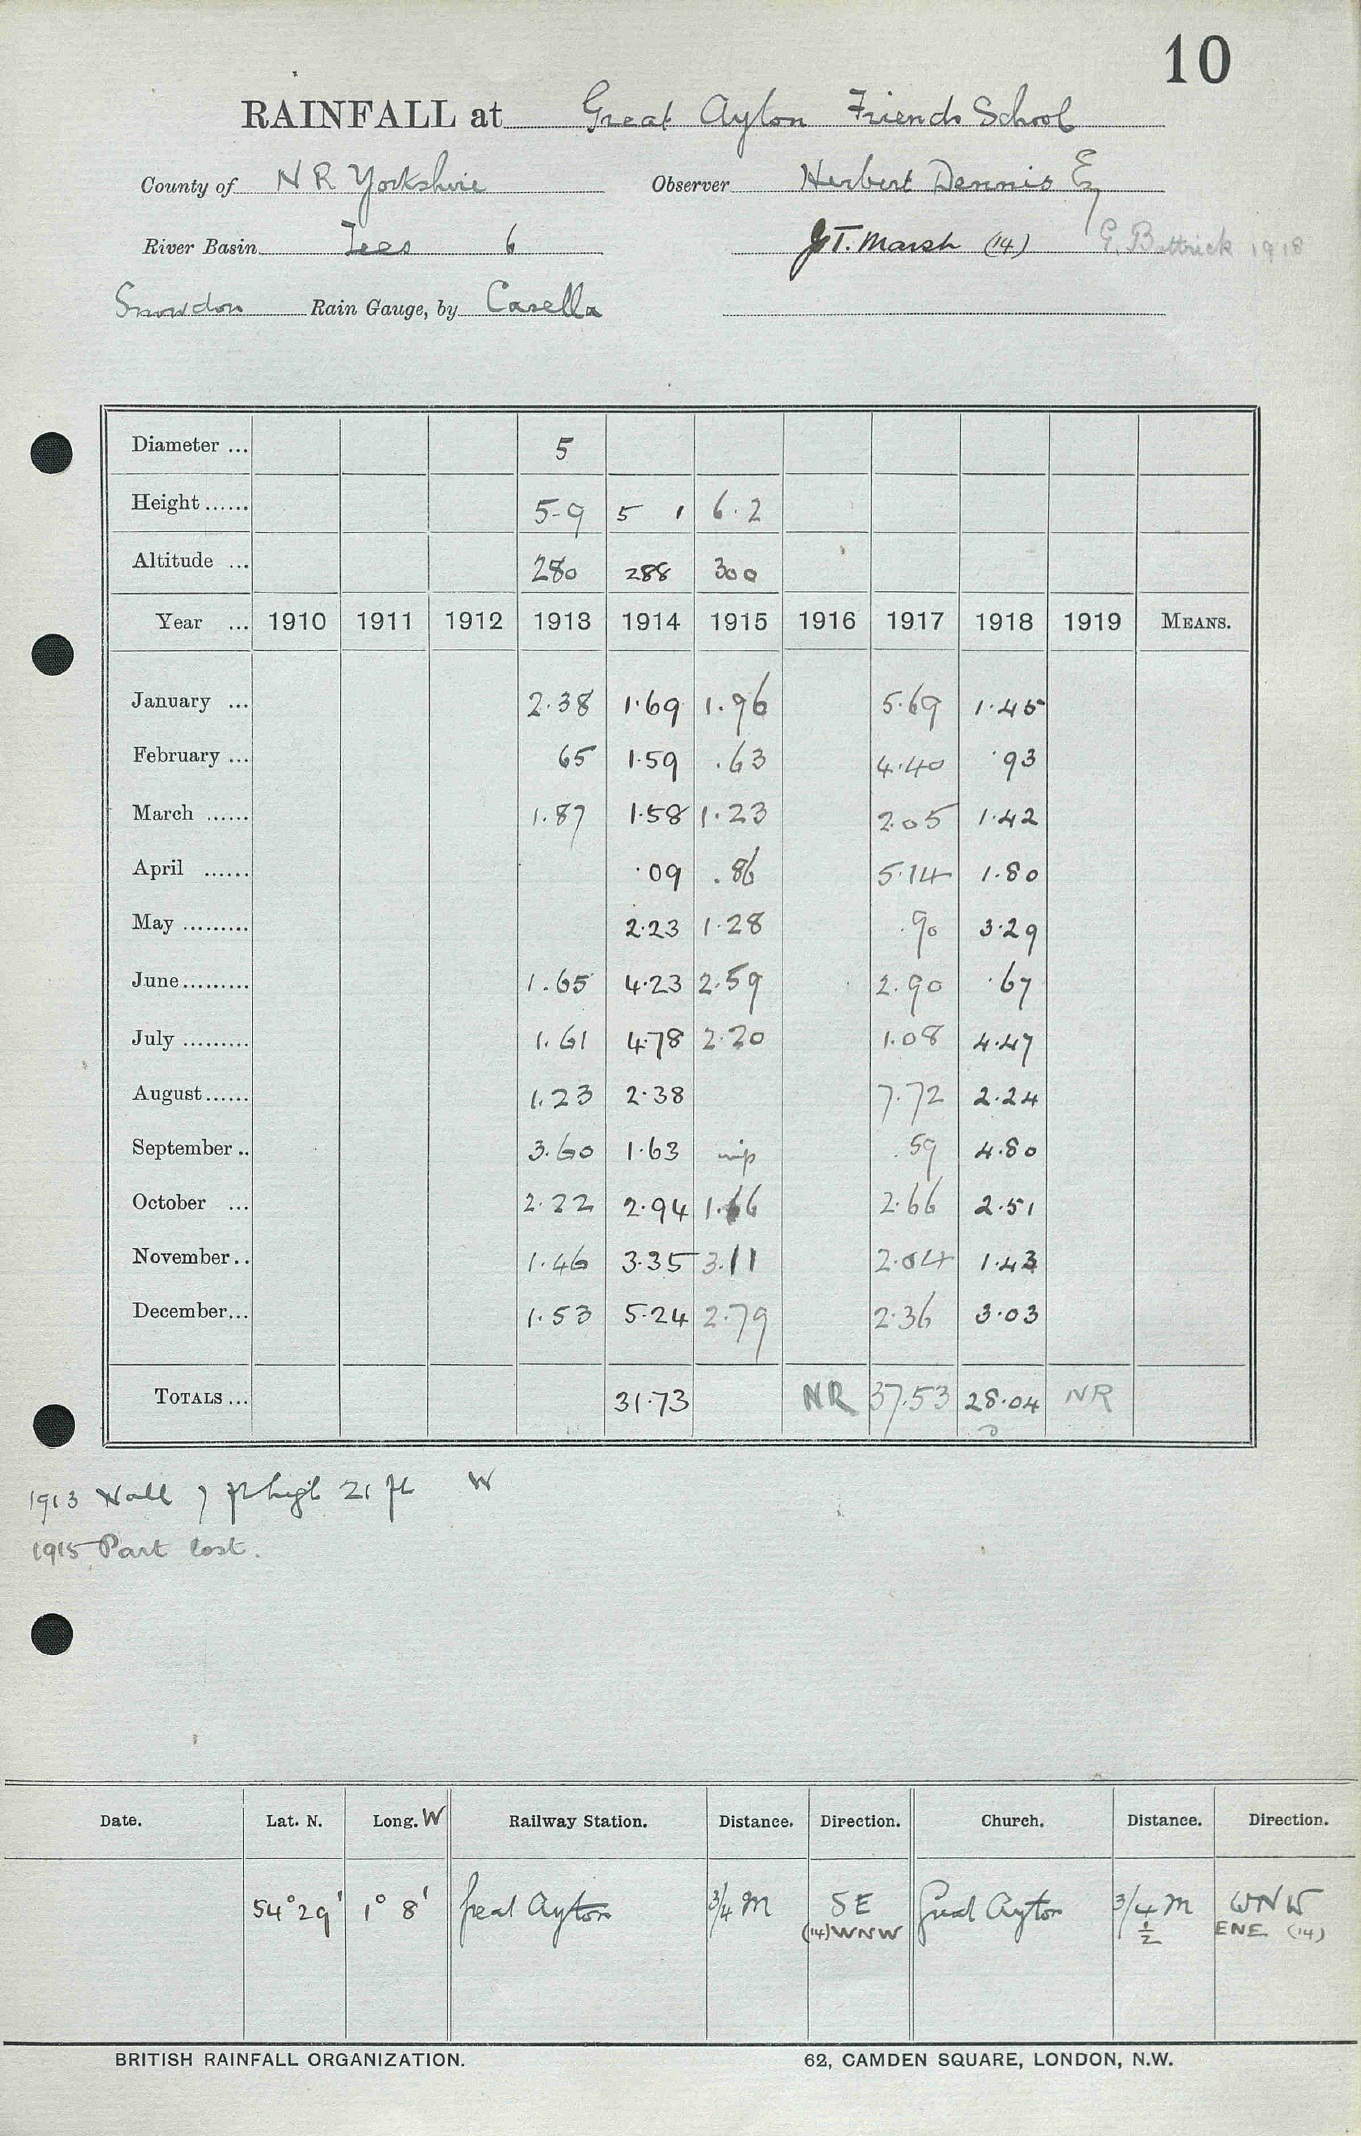 10
RAINFALL at Great Ayton Friends School
County of N R Yorkshire Observer Herbert Dennis Esq
River Basin Tees 6 J T. Marsh (14) G. Buttrick 1918
Snowdon Rain Gauge, by Casella
Diameter ... 5
Height...... 5-9 5 1 6.2
Altitude ... 280 288 300
Year ... 1910 1911 1912 1913 1914 1915 1916 1917 1918 1919 MEANS.
January ... 2.38 1.69 1.96 5.69 1.45
February ... 65 1.59 .63 4.40 .93
March ...... 1.87 1.58 1.23 2.05 1.42
April ...... .09 .86 5.14 1.80
May ......... 2.23 1.28 .90 3.29
June......... 1.65 4.23 2.59 2.90 .67
July ......... 1.61 4.78 2.20 1.08 4.47
August...... 1.23 2.38 7.72 2.24
September .. 3.60 1.63 .59 4.80
October ... 2.22 2.94 1.66 2.66 2.51
November.. 1.46 3.35 3.11 2.04 1.43
December... 1.53 5.24 2.79 2.36 3.03
TOTALS ... 31.73 NR 37.53 28.04 NR
1913 Wall 7 ft high 21 ft W
1915 Part lost.
Date. Lat. N. Long. W Railway Station. Distance. Direction. Church. Distance. Direction.
54° 29' 1° 8' Great Ayton 3/4 M SE Great Ayton 3/4 M WNW
(14) WNW 1/2 ENE (14)
BRITISH RAINFALL ORGANIZATION. 62, CAMDEN SQUARE, LONDON, N.W.